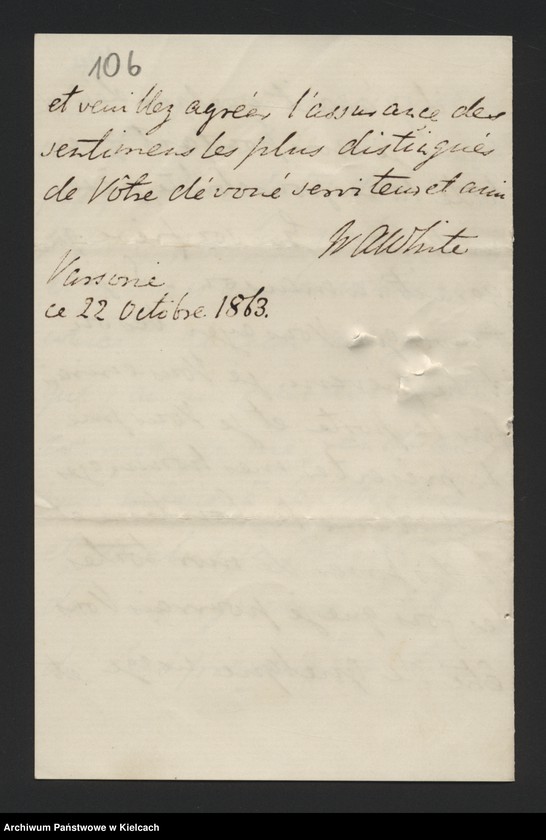 106
et veuillez agréer l'assurance des
sentimens les plus distingués
de Vôtre dévoué serviteur et ami
W A White
Varsovie
ce 22 Octobre 1863.
Archiwum Państwowe w Kielcach